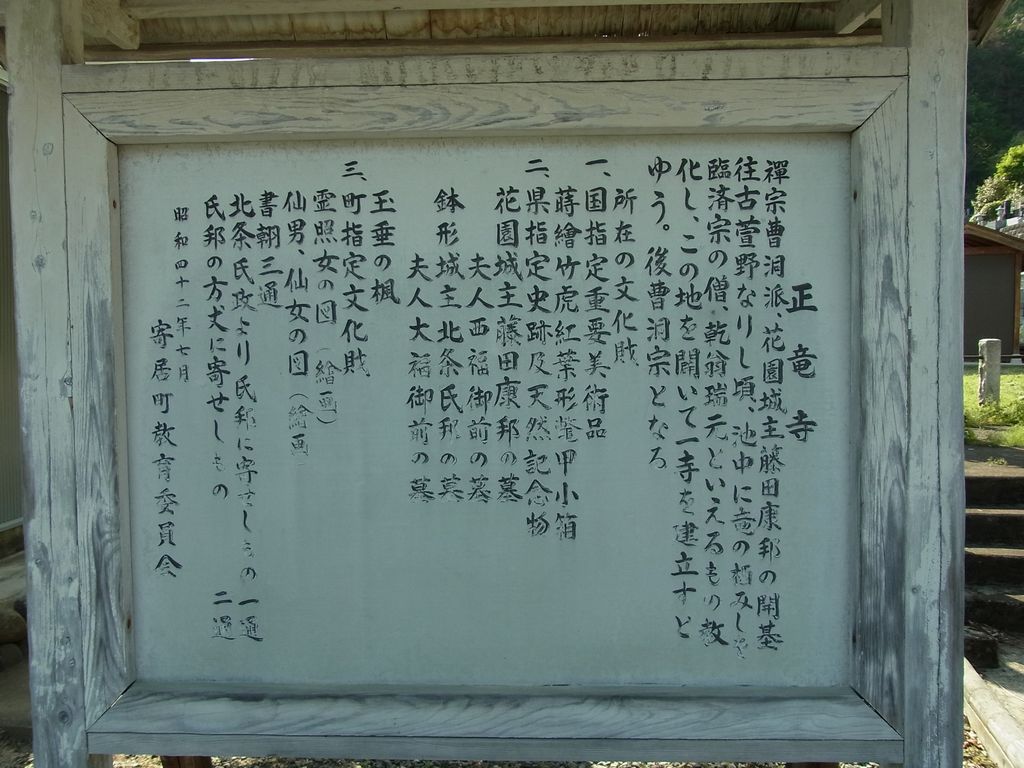 正竜寺
禪宗曹洞派、花園城主藤田康邦の開基
往古萱野なりし頃、池中に竜の栖みしを
臨済宗の僧、乾翁瑞元といえるもの教
化し、この地を開いて一寺を建立すと
ゆう。後曹洞宗となる
所在の文化財
一、国指定重要美術品
蒔繪竹虎紅葉形鼈甲小箱
二、県指定史跡及天然記念物
花園城主藤田康邦の墓
夫人西福御前の墓
鉢形城主北条氏邦の墓
夫人大福御前の墓
玉垂の楓
三、町指定文化財
霊照女の図（繪画）
仙男、仙女の図（絵画）
書翰三通
北条氏政より氏邦に寄せしもの 一通
氏邦の方丈に寄せしもの 二通
昭和四十二年七月
寄居町教育委員会